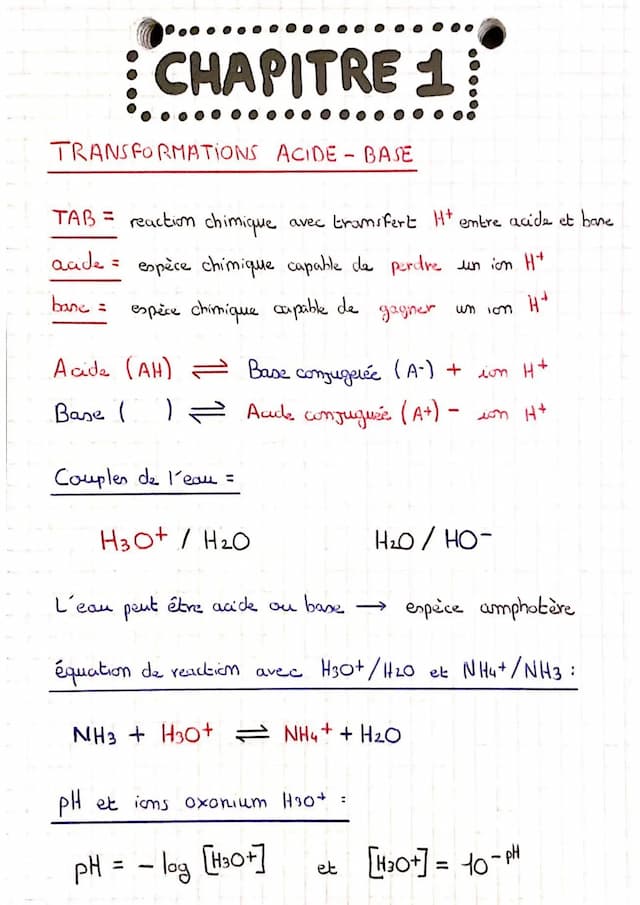 CHAPITRE 1
TRANSFORMATIONS ACIDE - BASE
TAB = reaction chimique avec transfert H+ entre acide et base
acide = espèce chimique capable de perdre un ion H+
base = espèce chimique capable de gagner un ion H+
Acide (AH) ⇌ Base conjugeléé (A-) + ion H+
Base ( ) ⇌ Acide conjuguéé (A+) - ion H+
Couples de l'eau =
H3O+ / H2O H2O / HO-
L'eau peut être acide ou base → espèce amphotère
équation de reaction avec H3O+/H2O et NH4+/NH3 :
NH3 + H3O+ ⇌ NH4+ + H2O
pH et ions oxonium H3O+ :
pH = - log [H3O+] et [H3O+] = 10-pH